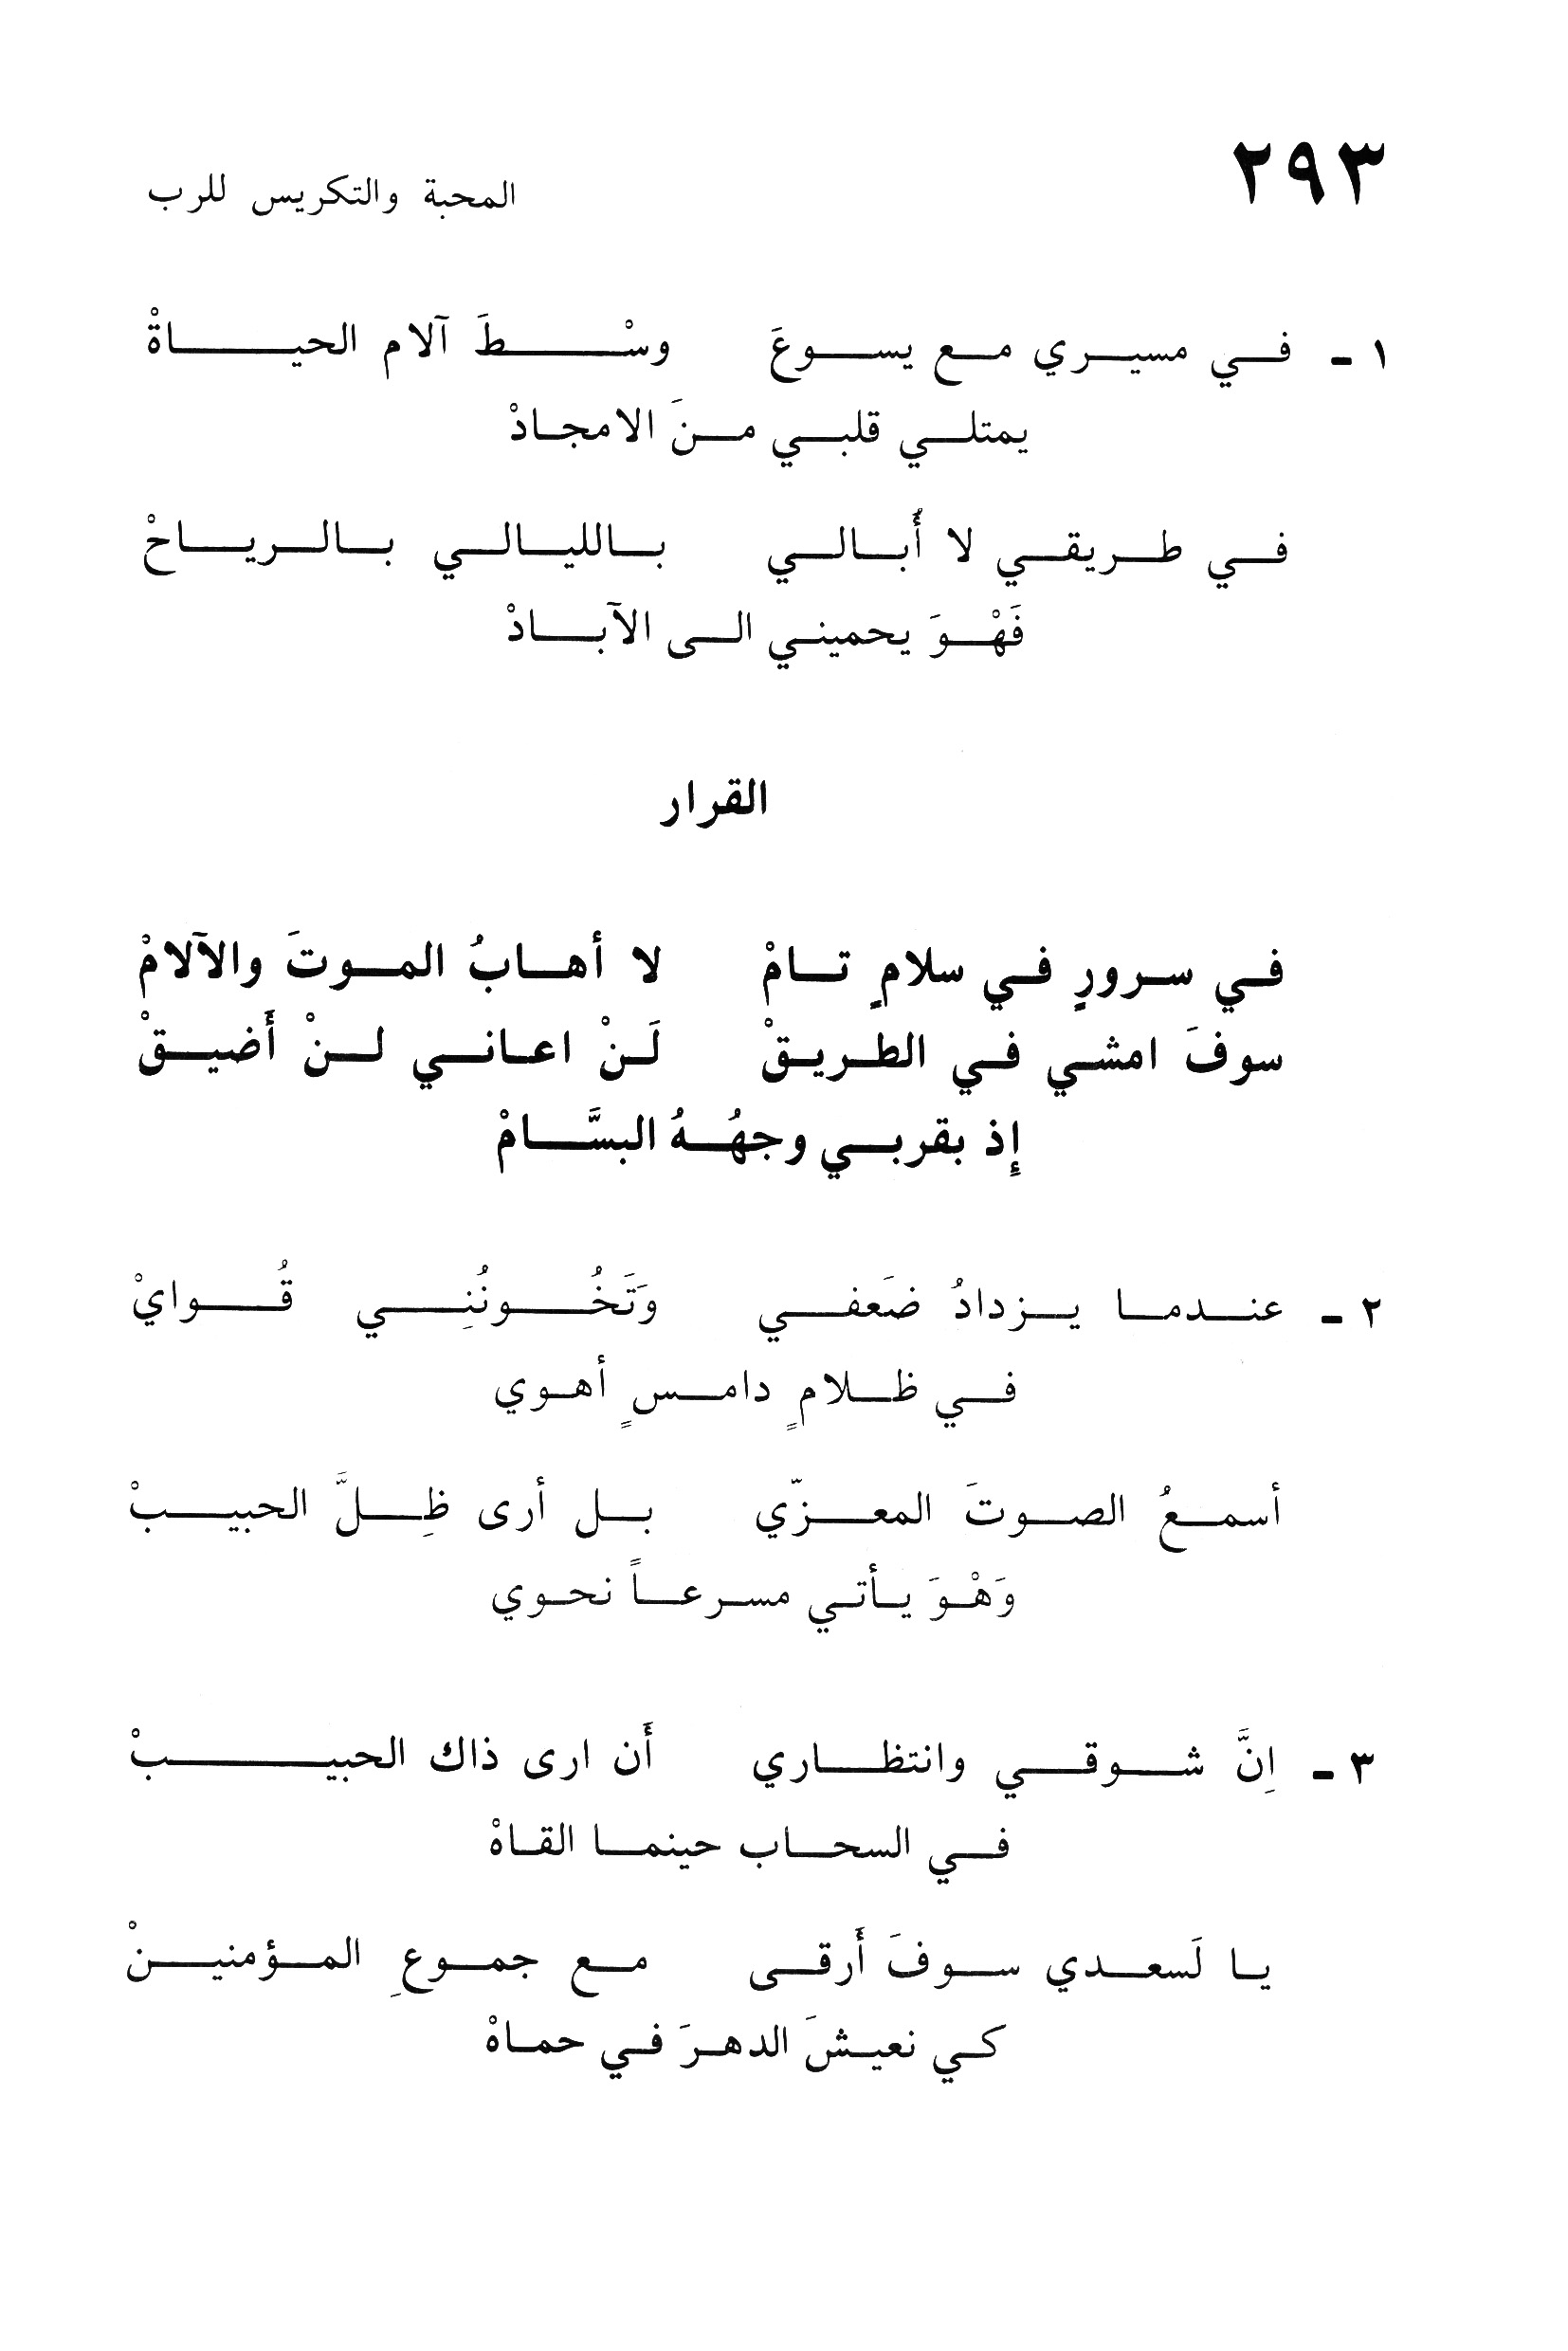 ٢٩٣ المحبة والتكريس للرب
١ - في مسيري مع يسوعَ وسْطَ آلام الحياةْ
يمتلي قلبي منَ الامجادْ
في طريقي لا أُبالي بالليالي بالرياحْ
فَهْوَ يحميني الى الآبادْ
القرار
في سرورٍ في سلامٍ تامْ لا أهابُ الموتَ والآلامْ
سوفَ امشي في الطريقْ لَنْ اعاني لنْ أَضيقْ
إِذ بقربي وجهُهُ البسَّامْ
٢ - عندما يزدادُ ضَعفي وَتَخُونُنِي قُوايْ
في ظلامٍ دامسٍ أهوي
أسمعُ الصوتَ المعزّي بل أرى ظِلَّ الحبيبْ
وَهْوَ يأتي مسرعاً نحوي
٣ - اِنَّ شوقي وانتظاري أَن ارى ذاك الحبيبْ
في السحاب حينما القاهْ
يا لَسعدي سوفَ أَرقى مع جموعِ المؤمنينْ
كي نعيشَ الدهرَ في حماهْ